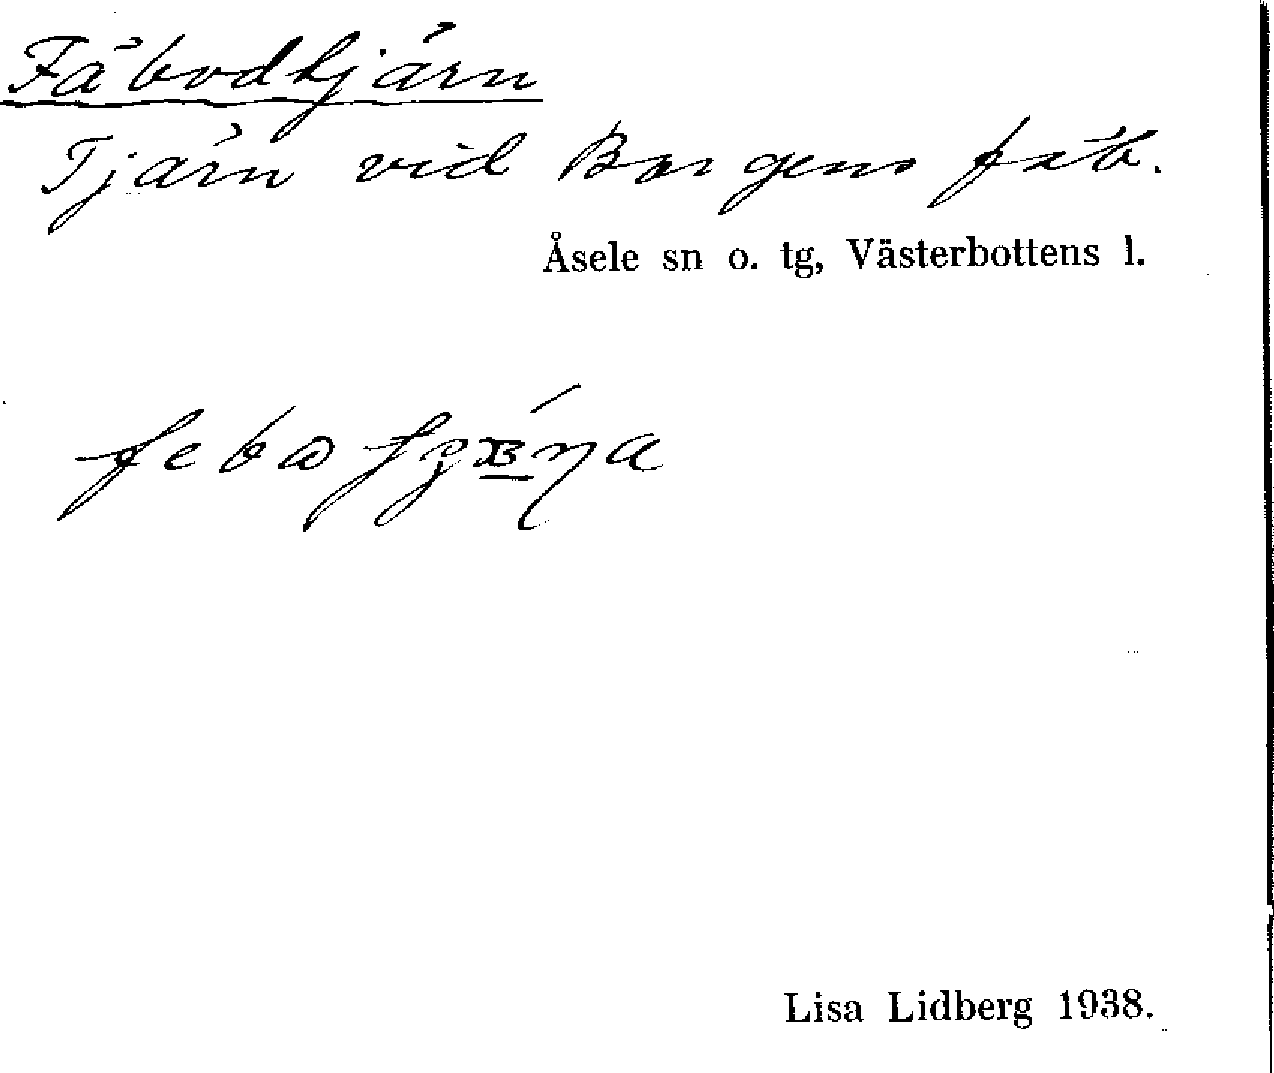 Fäbodtjärn
Tjärn vid Borgens fäb.
Åsele sn o. tg, Västerbottens l.
Lisa Lidberg 1938.